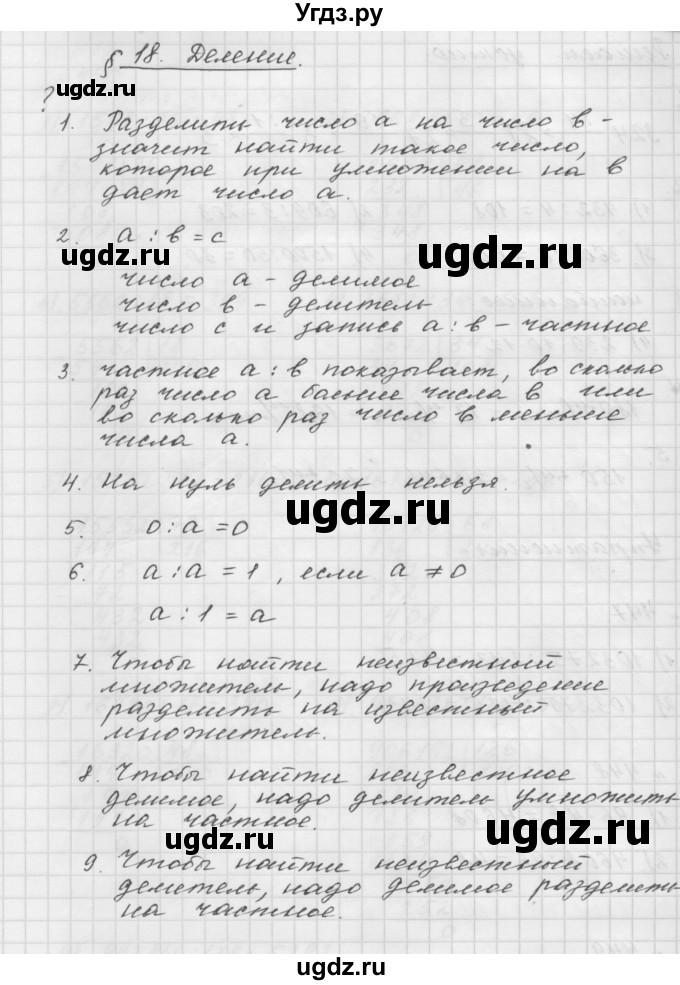 Угдз.ру
§ 18. Деление.
ugdz.ru
ugdz.ru
?
1. Разделить число а на число в -
значит найти такое число,
которое при умножении на в
дает число а.
2. а : в = с
ugdz.ru
ugdz.ru
число а - делимое
число в - делитель
число с и запись а : в - частное
3. частное а : в показывает, во сколько
раз число а больше числа в или
во сколько раз число в меньше
числа а.
4. На нуль делить нельзя.
ugdz.ru
ugdz.ru
5. 0 : а = 0
6. а : а = 1, если а ≠ 0
а : 1 = а
7. Чтобы найти неизвестный
множитель, надо произведение
разделить на известный
множитель.
8. Чтобы найти неизвестное
делимое, надо делитель умножить
на частное.
ugdz.ru
ugdz.ru
9. Чтобы найти неизвестный
делитель, надо делимое разделить
на частное.
ugdz.ru